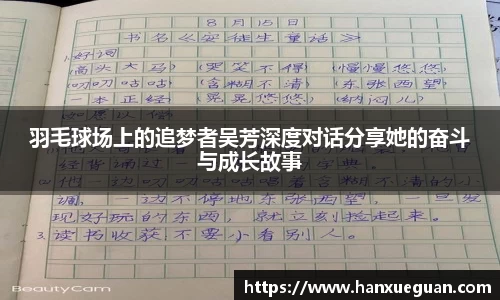 8月15日
书名《安徒生童话》
1.好词
(高头大马) (哭笑不得) (慢慢悠悠)
(叨叨咕咕) (含糊不清) (东张西望)
(一本正经) (晃晃悠悠) (纳闷儿)
羽毛球场上的追梦者吴芳深度对话分享她的奋斗
与成长故事
调,一边不停地东张西望,一旦发
现好玩的东西,就立刻捡起来。
3.读书收获不要小看别人。
BeautyCam
https://www.hanxueguan.com